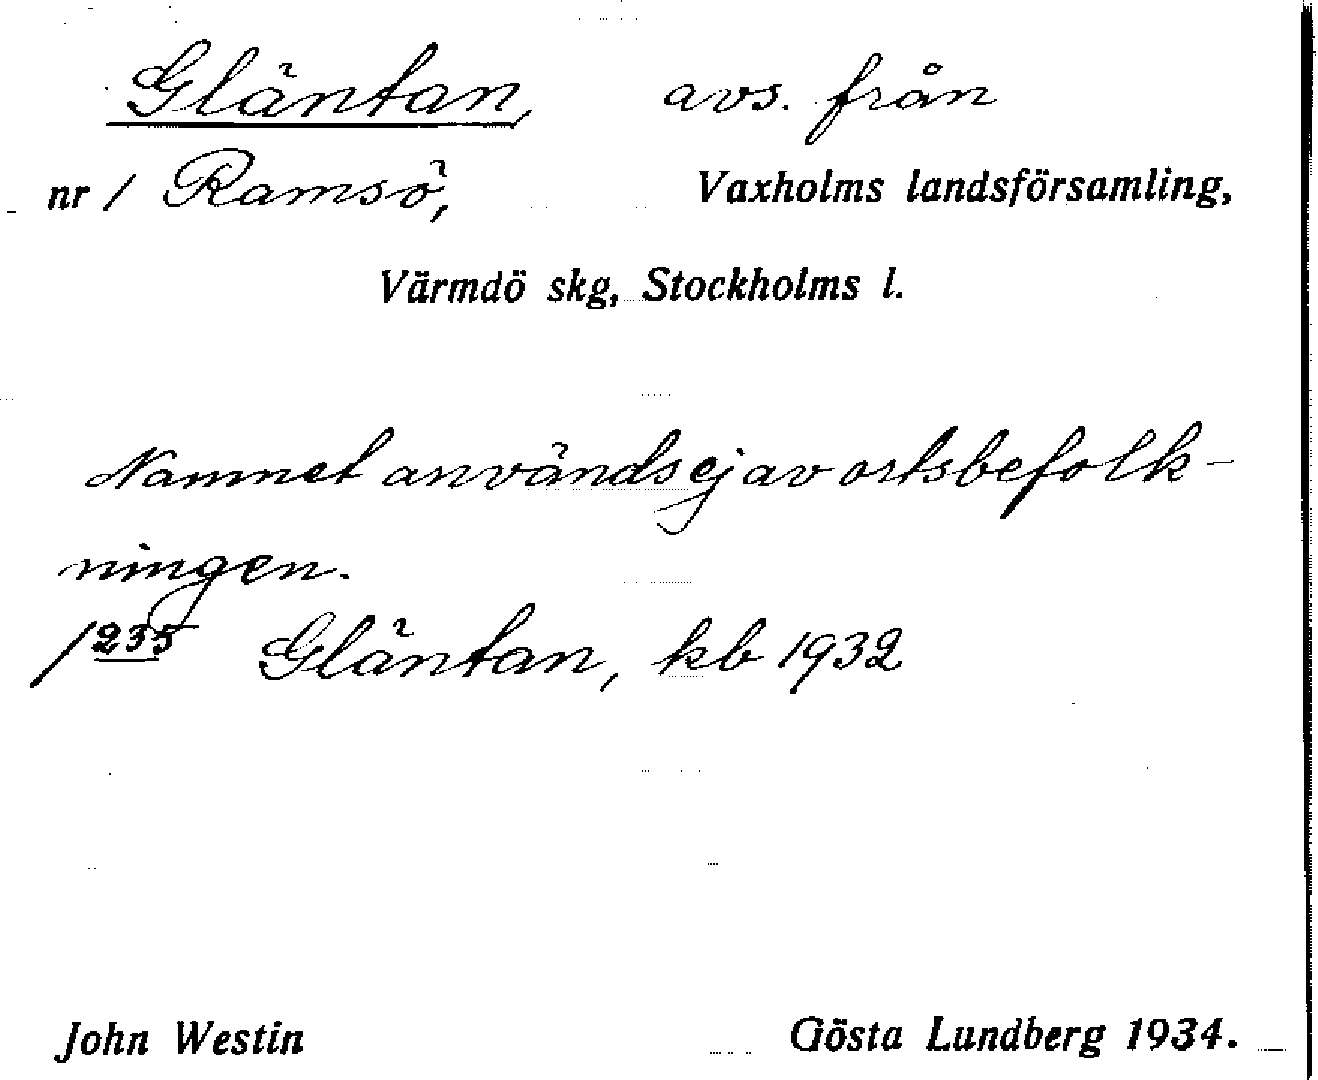 Gläntan, avs. från
nr 1 Ramsö, Vaxholms landsförsamling,
Värmdö skg, Stockholms l.
Namnet användsejav ortsbefolk-
ningen.
1235 Gläntan, kb 1932
John Westin Gösta Lundberg 1934.